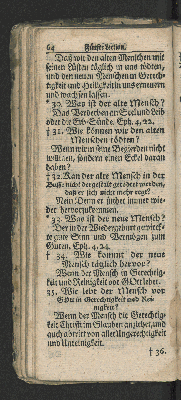 64 Fünfte Lection.
Daß wir den alten Menschen mit
seinen Lüsten täglich in uns tödten,
und den neuen Menschen in Gerech-
tigkeit und Heiligkeit in uns erneuern
und wachsen lassen.
† 30. Was ist der alte Mensch?
Das Verderben an Seel und Leib
oder die Erb-Sünde. Eph. 4, 22.
† 31. Wie können wir den alten
Menschen tödten?
Wenn wir in seine Begierden nicht
willigen, sondern einen Eckel daran
haben.
† 32. Kan der alte Mensch in der
Busse nicht dergestalt getödtet werden,
daß er sich nicht mehr rege?
Nein: Denn er suchet immer wie-
der hervorzukommen.
† 33. Was ist der neue Mensch?
Der in der Wiedergeburt gewirck-
te gute Sinn und Vermögen zum
Guten. Eph. 4, 24.
† 34. Wie kommt der neue
Mensch täglich hervor?
Wenn der Mensch in Gerechtig-
keit und Reinigkeit vor GOtt lebet.
35. Wie lebt der Mensch vor
GOtt in Gerechtigkeit und Rei-
nigkeit?
Wenn der Mensch die Gerechtig-
keit Christi im Glauben anziehet, und
auch abtritt von aller Ungerechtigkeit
und Unreinigkeit.
† 36.